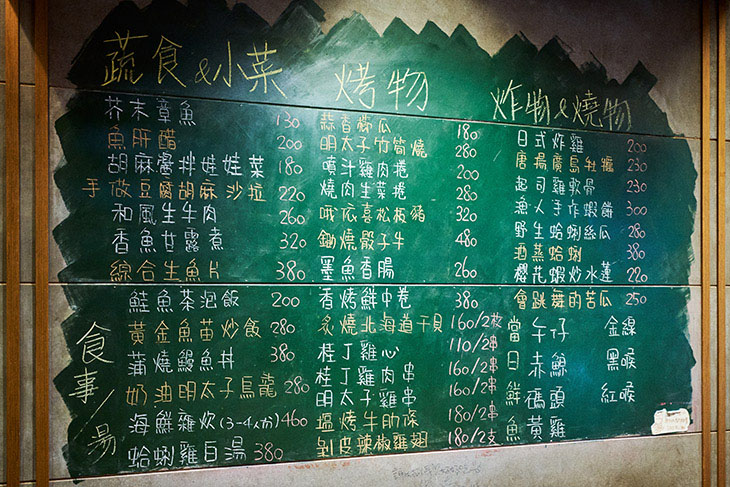 蔬食&小菜
芥末章魚 130
魚肝醋 200
胡麻醬拌娃娃菜 180
手做豆腐胡麻沙拉 220
和風生牛肉 260
香魚甘露煮 320
綜合生魚片 380
食事/湯
鮭魚茶泡飯 200
黃金魚苗炒飯 280
蒲燒鰻魚丼 380
奶油明太子烏龍 280
海鮮雜炊(3-4人份) 460
蛤蜊雞白湯 380
烤物
蒜香筊瓜 180
明太子竹筍燒 280
噴汁雞肉捲 200
燒肉生菜捲 280
哦依喜松板豬 320
鋤燒骰子牛 480
墨魚香腸 260
香烤鮮中卷 380
炙燒北海道干貝 160/2枚
桂丁雞心 110/2串
桂丁雞肉串 160/2串
明太子雞串 160/2串
塩烤牛肋條 180/2串
剝皮辣椒雞翅 180/2支
炸物&燒物
日式炸雞 200
唐揚廣島牡蠣 230
起司雞軟骨 230
漁人手作蝦餅 300
野生蛤蜊絲瓜 280
酒蒸蛤蜊 380
櫻花蝦炒水蓮 220
會跳舞的苦瓜 250
當日鮮魚
午仔 金線
赤鯮 黑喉
碼頭 紅喉
黃雞